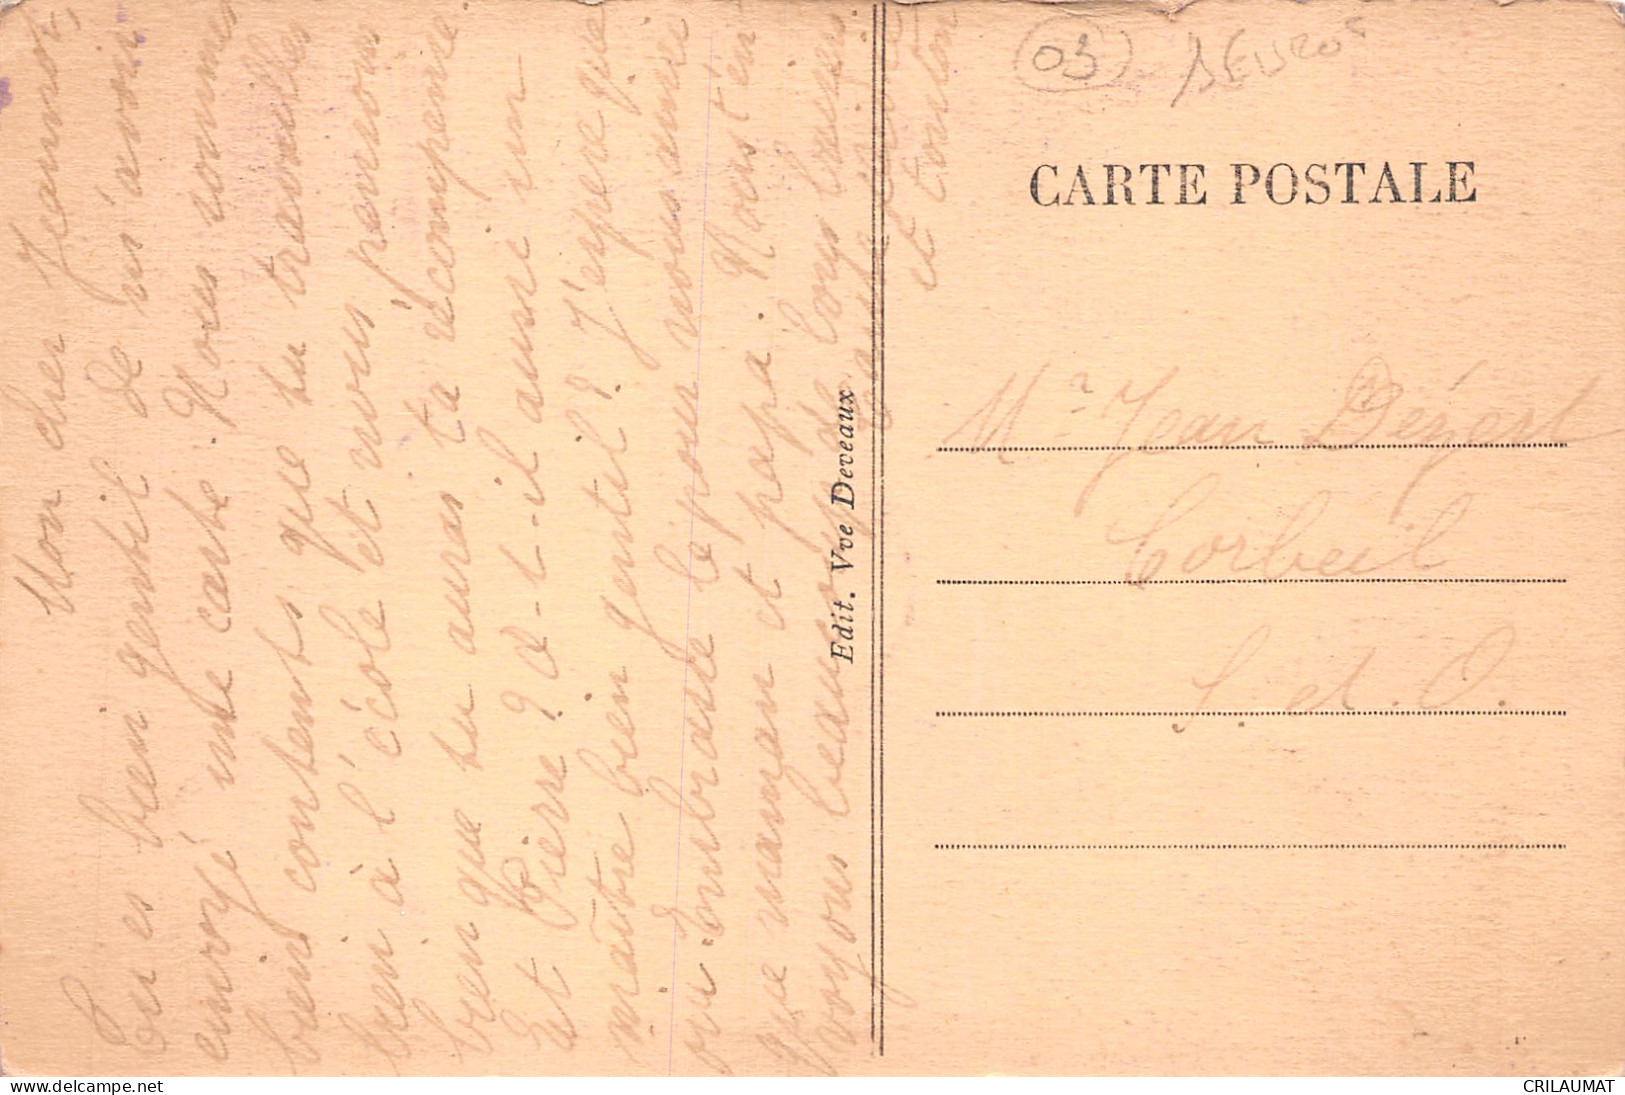 Mon cher Jeannot,
Tu es bien gentil de m'avoir
envoyé une carte. Nous sommes
bien contents que tu travailles
bien à l'école et nous pensons
bien que tu auras ta récompense.
Et Pierre? a-t-il aussi un
maître bien gentil? J'espère que
oui. Embrasse le pour nous ainsi
que maman et papa. Nous t'en-
voyons beaucoup de bons baisers.
et tonton
Edit. Vve Deveaux
03
CARTE POSTALE
Mr Jean Dézert
Corbeil
S. et O.
www.delcampe.net
CRILAUMAT